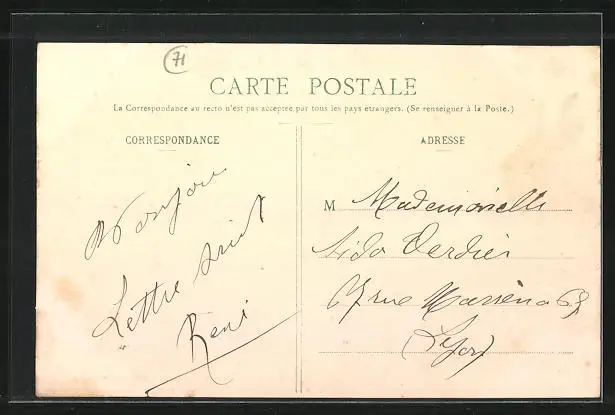 71
CARTE POSTALE
La Correspondance au recto n'est pas acceptée par tous les pays étrangers. (Se renseigner à la Poste.)
CORRESPONDANCE
ADRESSE
Bonjour
Lettre suit
René
M Mademoiselle
Verdier
rue Masséna 69
(Lyon)